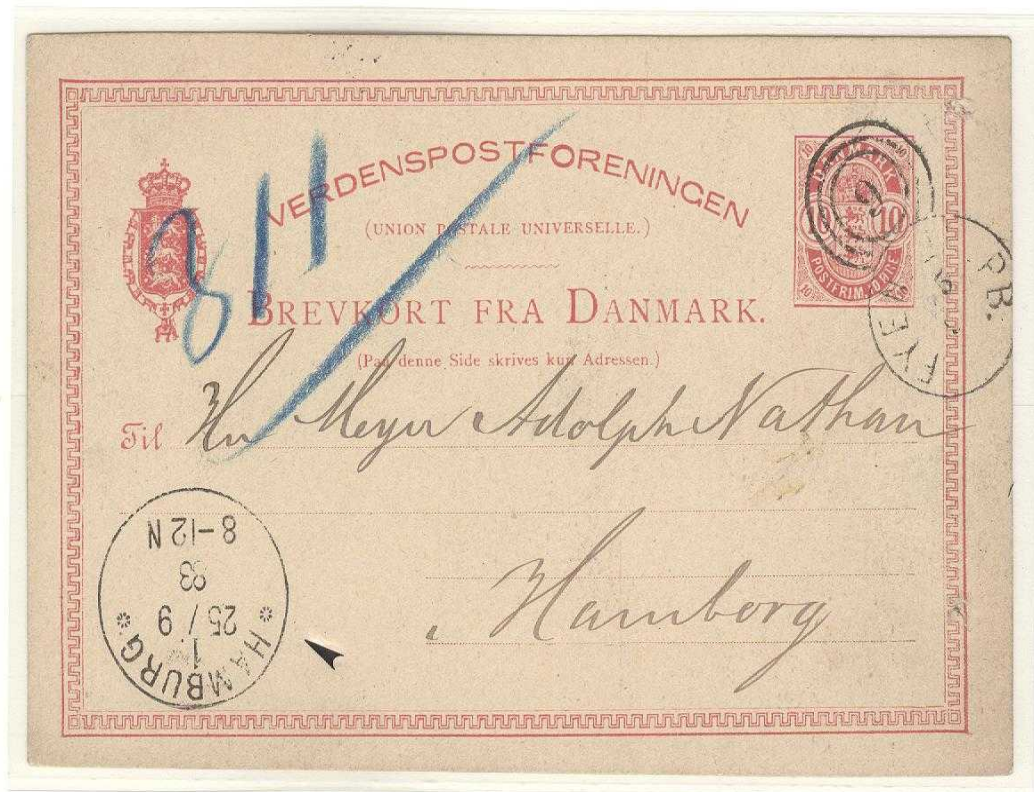 VERDENSPOSTFORENINGEN
(UNION POSTALE UNIVERSELLE.)
BREVKORT FRA DANMARK.
(Paa denne Side skrives kun Adressen.)
10 DANMARK 10
10 10
POSTFRIM. 10 ØRE
10
P.B.
811
Til Hr Meyer Adolph Nathan
Hamborg
HAMBURG
1.
25/9
83
8-12 N